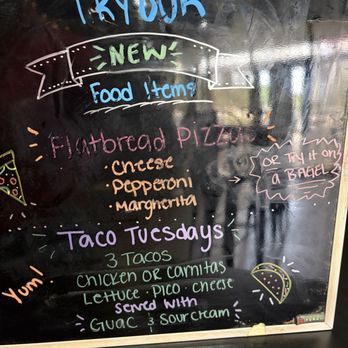 TRY OUR
NEW
Food Items
Flatbread Pizzas
• Cheese
• Pepperoni
• Margherita
OR TRY IT ON
A BAGEL
Taco Tuesdays
3 Tacos
Chicken OR Carnitas
Lettuce • Pico • Cheese
Served with
Guac & Sour Cream
Yum!